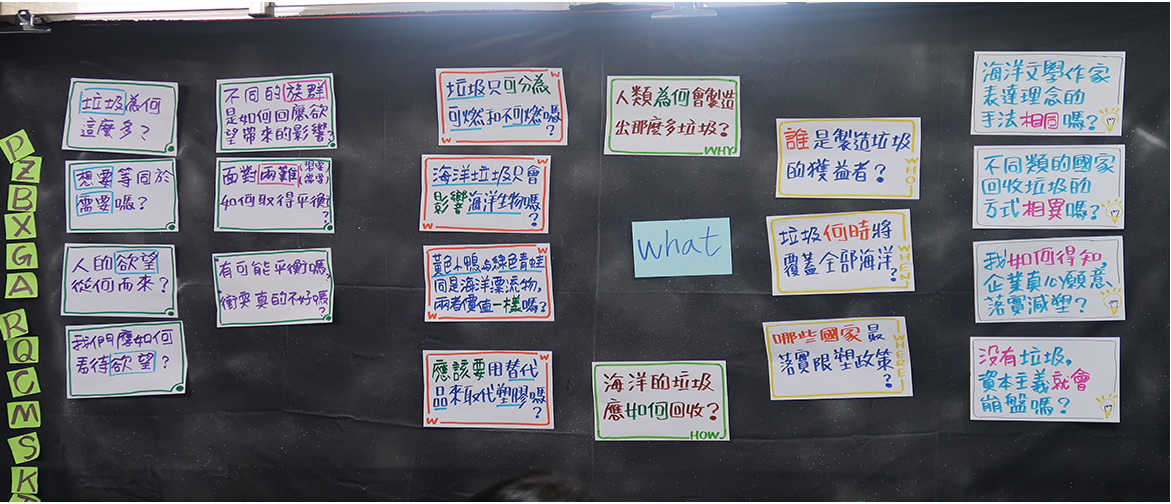 P
Z
B
X
G
A
R
Q
C
M
S
K
垃圾為何
這麼多?
想要等同於
需要嗎?
人的欲望
從何而來?
我們應如何
看待欲望?
不同的族群
是如何回應欲
望帶來的影響?
面對兩難(想要)(需要)
如何取得平衡?
有可能平衡嗎,
衝突真的不好嗎?
W
垃圾只可分為
可燃和不可燃嗎?
W
W
海洋垃圾只會
影響海洋生物嗎?
W
W
黃色小鴨与綠色青蛙
同是海洋漂流物,
兩者價值一樣嗎?
W
W
應該要用替代
品來取代塑膠嗎?
W
人類為何會製造
出那麼多垃圾?
WHY
what
海洋的垃圾
應如何回收?
HOW
誰是製造垃圾
的獲益者?
WHO
垃圾何時將
覆蓋全部海洋?
WHEN
哪些國家最
落實限塑政策?
WHERE
海洋文學作家
表達理念的
手法相同嗎?
不同類的國家
回收垃圾的
方式相異嗎?
我如何得知,
企業真心願意
落實減塑?
没有垃圾,
資本主義就會
崩盤嗎?